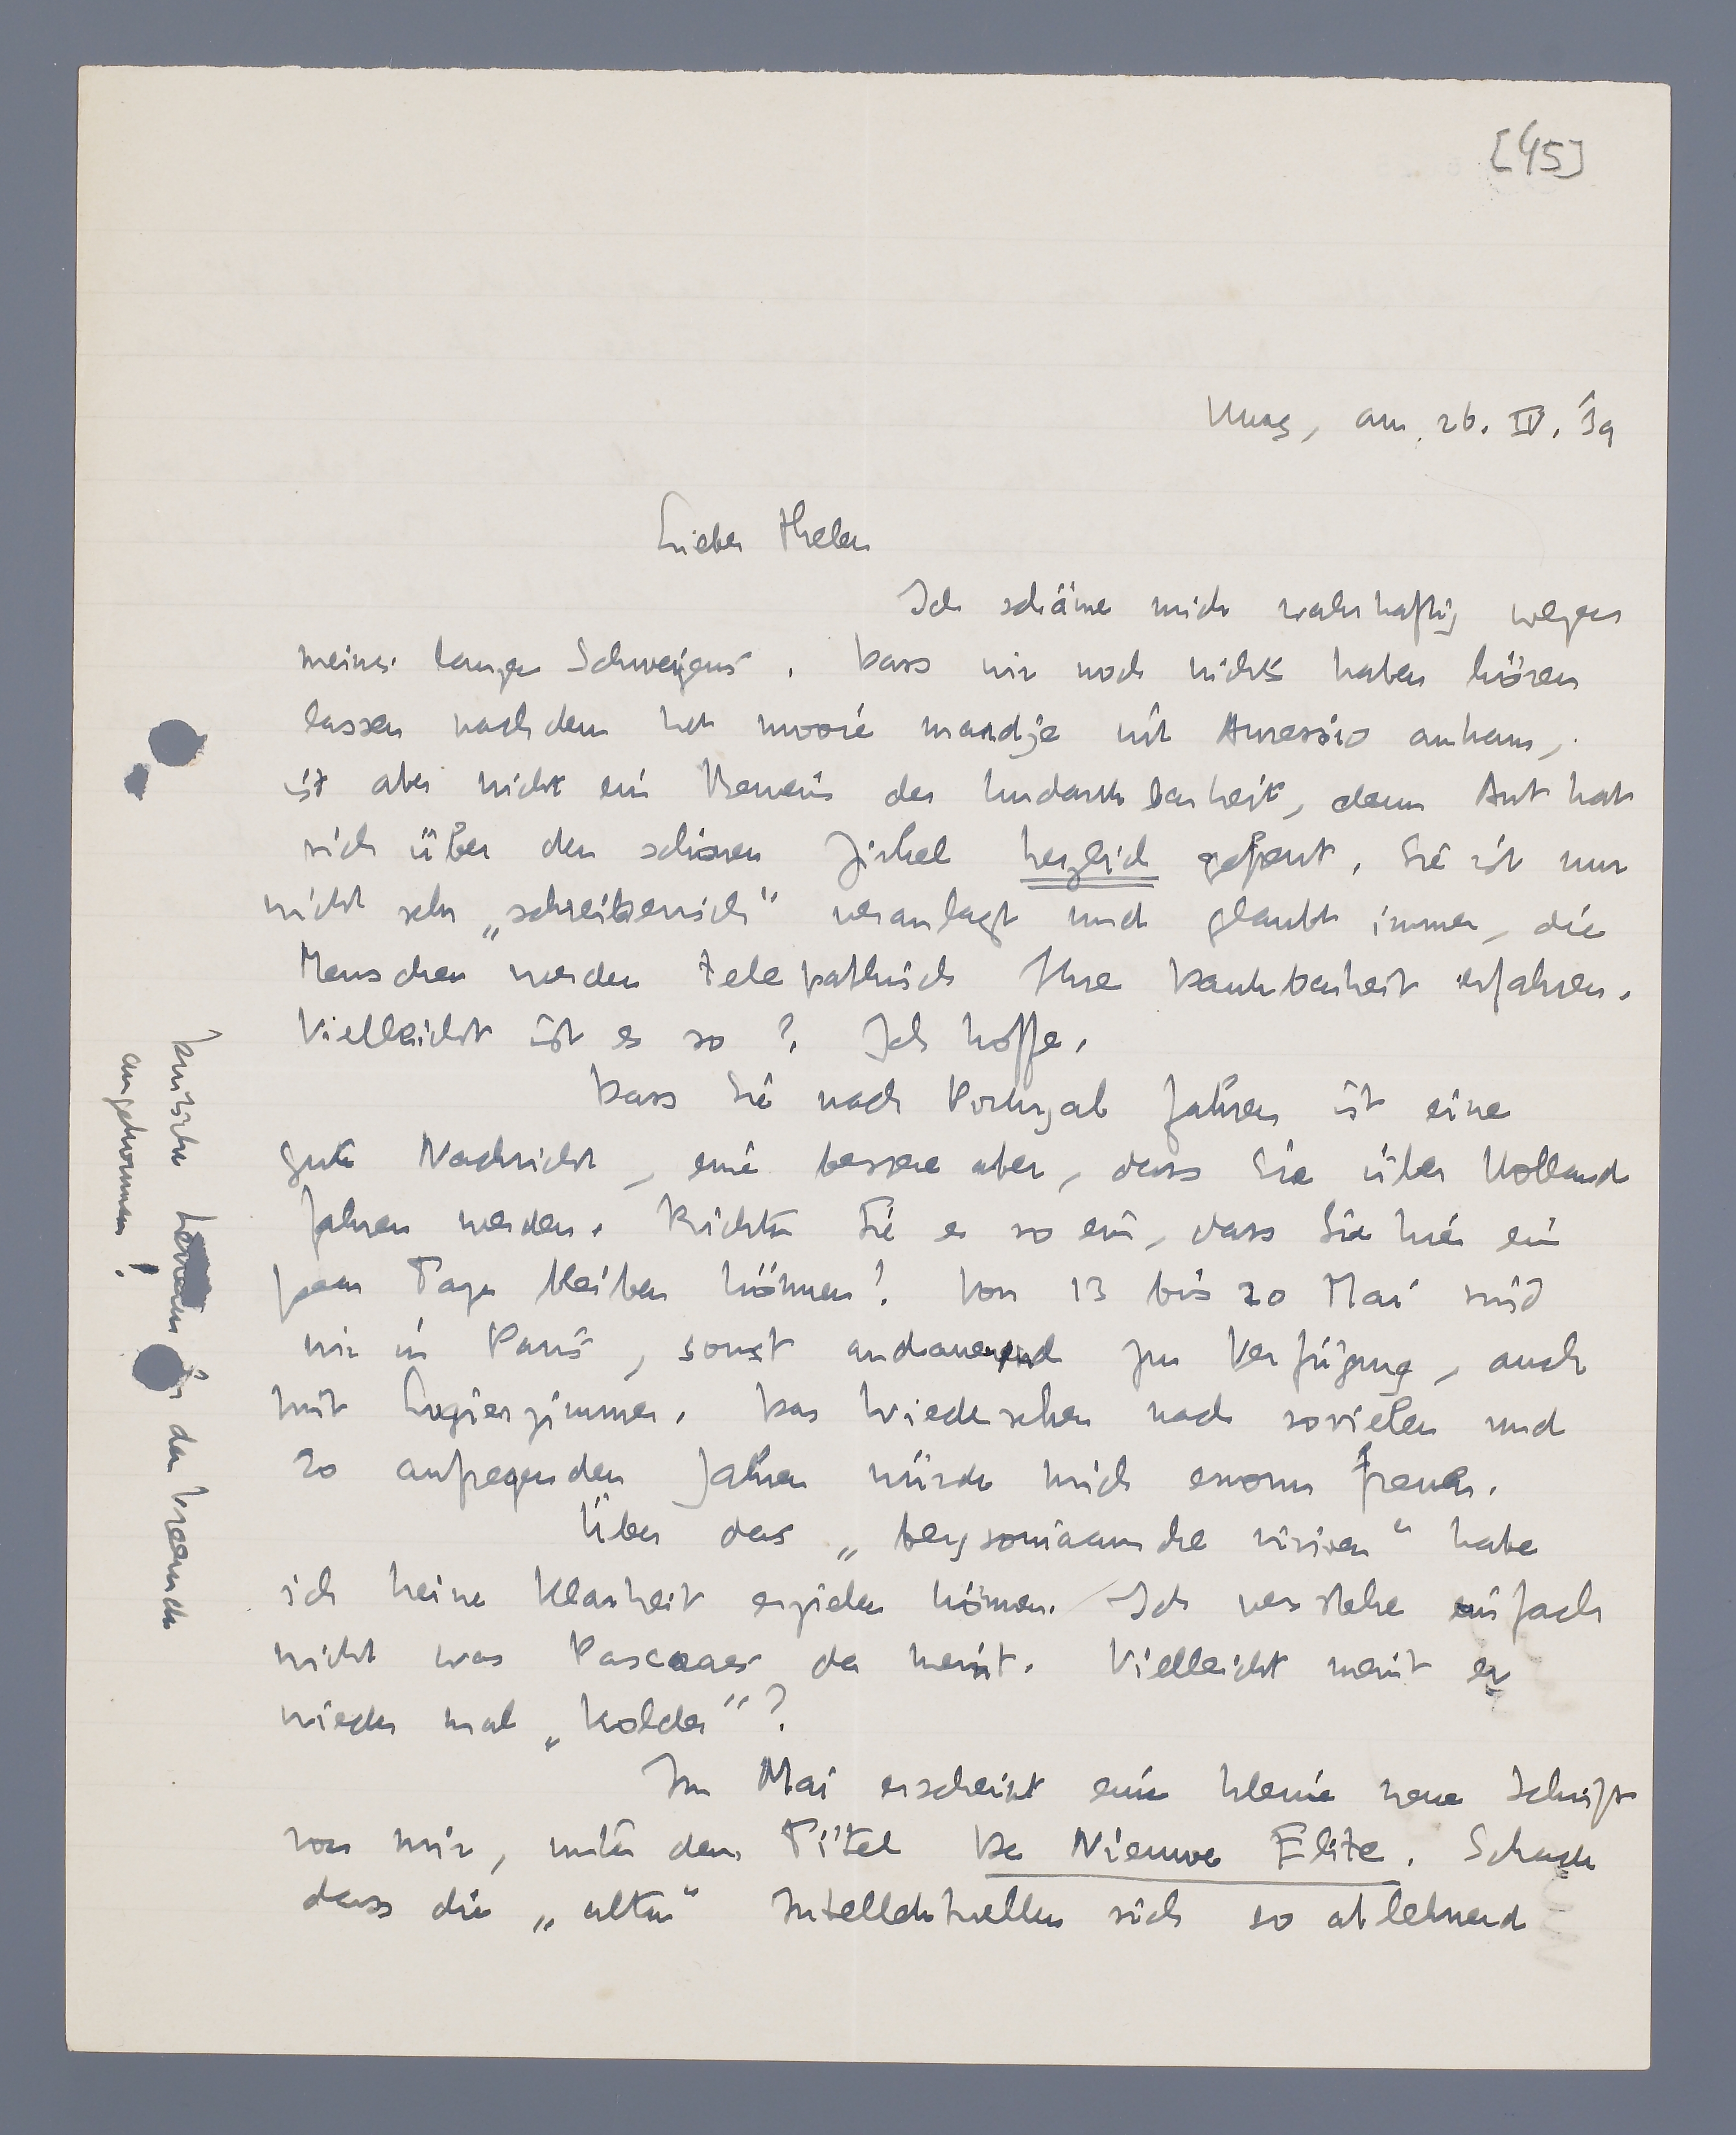 [45]
Haag, am 26. IV. 39
Lieber Thelen
Ich schäme mich wahrhaftig wegen
meines langen Schweigens. Dass wir noch nichts haben hören
lassen nachdem het mooie mandje mit ankam,
ist aber nicht ein Beweis der Undankbarheit, denn Ant hat
sich über den schönen Zirkel herzlich gefreut. Sie ist nur
nicht sehr „schreiberisch“ veranlagt und glaubt immer, die
Menschen werden telepathisch Ihre Dankbarheit erfahren.
Vielleicht ist es so? Ich hoffe.
Dass Sie nach Portugal fahren ist eine
gute Nachricht, eine bessere aber, dass Sie über Holland
fahren werden. Richten Sie es so ein, dass Sie hier ein
paar Tage bleiben können! Von 13 bis 20 Mai sind
wir in Paris, sonst andauernd zur Verfügung, auch
mit Logierzimmer. Das Wiedersehen nach sovielen und
so aufregenden Jahren würde mich enorm freuen.
Über das „bergsoniaansche visioen“ habe
ich keine Klarheit erzielen können. Ich verstehe einfach
nicht was Pascoaes da meint. Vielleicht meint er
wieder mal „kolder“?
Im Mai erscheint eine kleine neue Schrift
von mir, unter dem Titel De Nieuwe Elite. Schade
dass die „alten“ Intellektuellen sich so ablehnend
Deutsche der
angekommen!